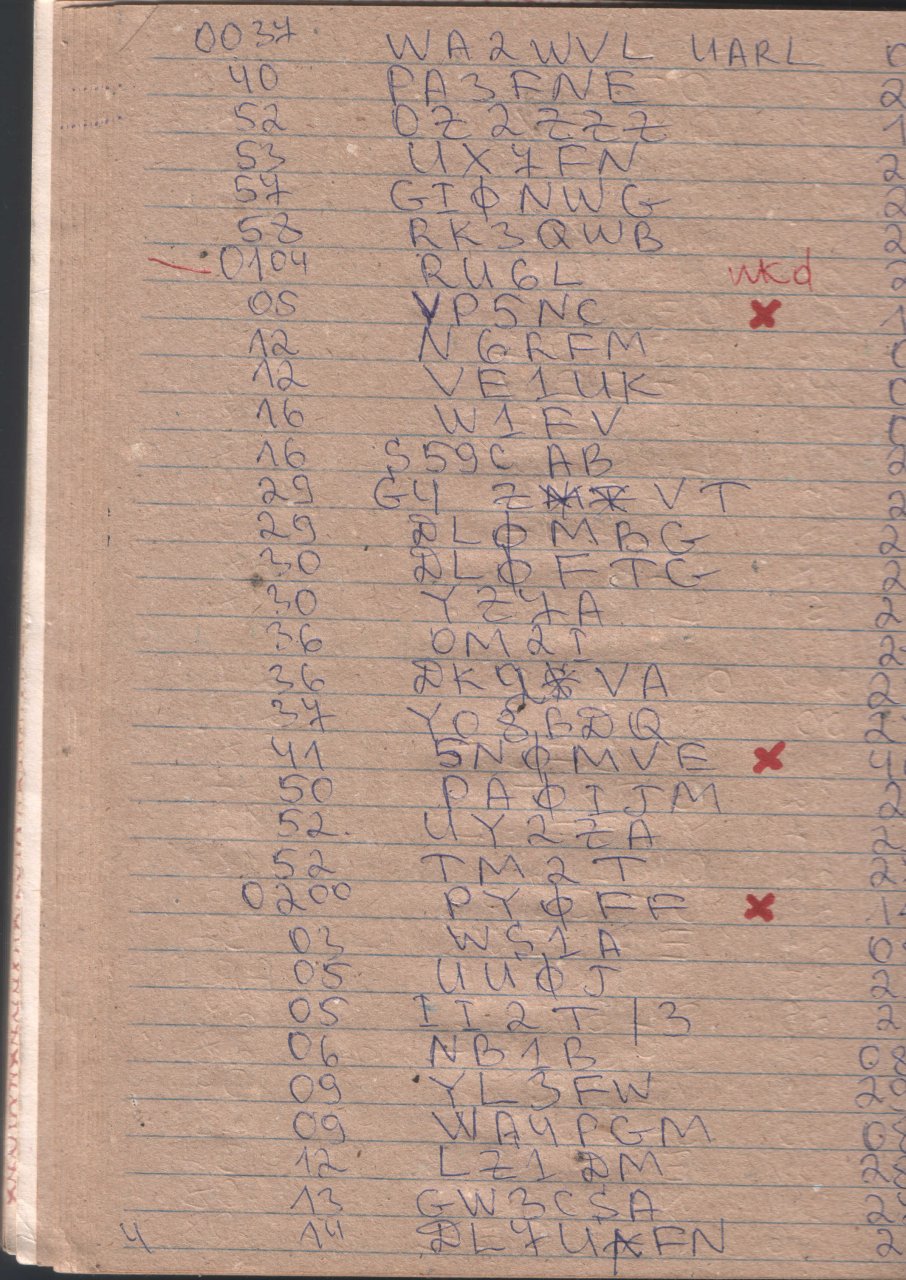 0037 WA2WVL UARL
40 PA3FNE 2
52 OZ2ZZZ 1
53 UX7FN 2
57 GIØNWG 2
58 RK3QWB 2
0104 RU6L wkd 2
05 VP5NC ✖ 1
12 N6RFM 0
12 VE1UK 0
16 W1FV 0
16 S59CAB 2
29 G4 Z VT 2
29 DLØMBG 2
30 DLØFTG 2
30 YZ7A 2
36 OM2T 2
36 DK9VA 2
37 YO8BDQ 2
41 5NØMVE ✖ 4
50 PAØIJM 2
52 UY2ZA 2
52 TM2T 2
0200 PYØFF ✖
03 WS1A 0
05 UUØJ 2
05 II2T/3 2
06 NB1B 0
09 YL3FW 2
09 WA4PGM 0
12 LZ1DM 2
13 GW3CSA 2
4 14 DL7UFN 2